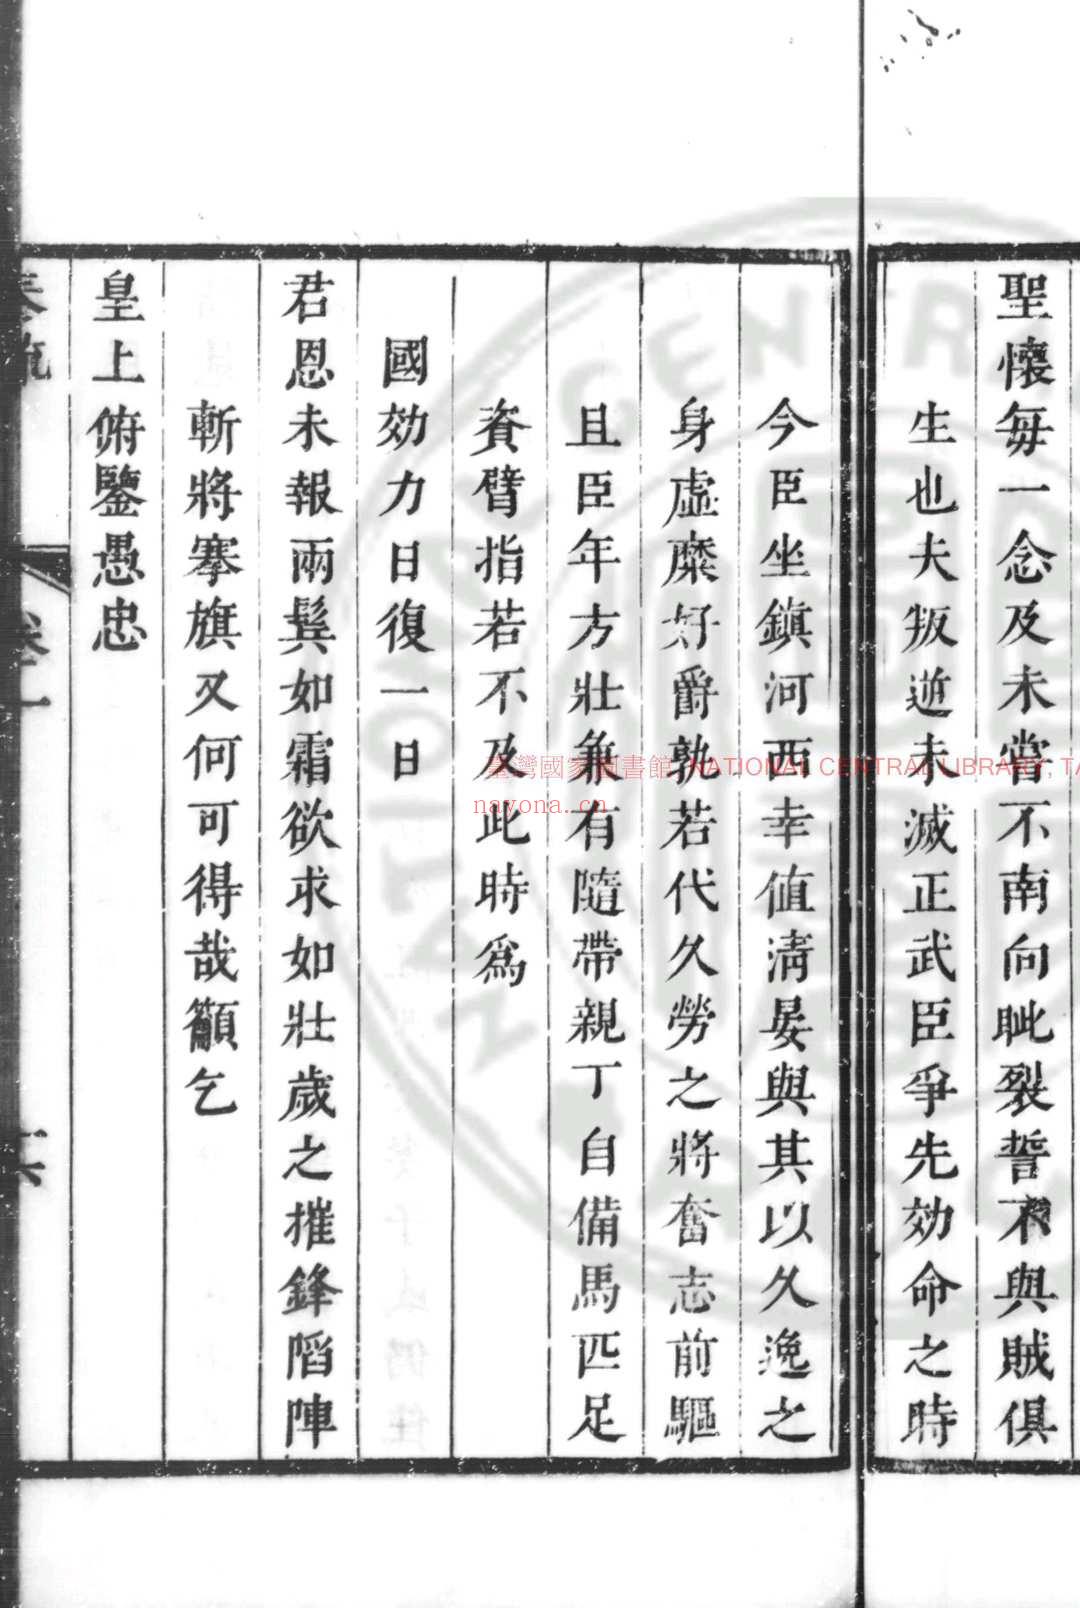 聖懷每一念及未嘗不南向眦裂誓不與賊俱
生也夫叛逆未滅正武臣爭先効命之時
今臣坐鎮河西幸值淸晏與其以久逸之
身虛糜好爵孰若代久勞之將奮志前驅
且臣年方壯兼有隨帶親丁自備馬匹足
資臂指若不及此時爲
國効力日復一日
君恩未報兩鬂如霜欲求如壯歲之摧鋒陷陣
斬將搴旗又何可得哉籲乞
皇上俯鑒愚忠
臺灣國家圖書館, NATIONAL CENTRAL LIBRARY, TA
nayona.cn